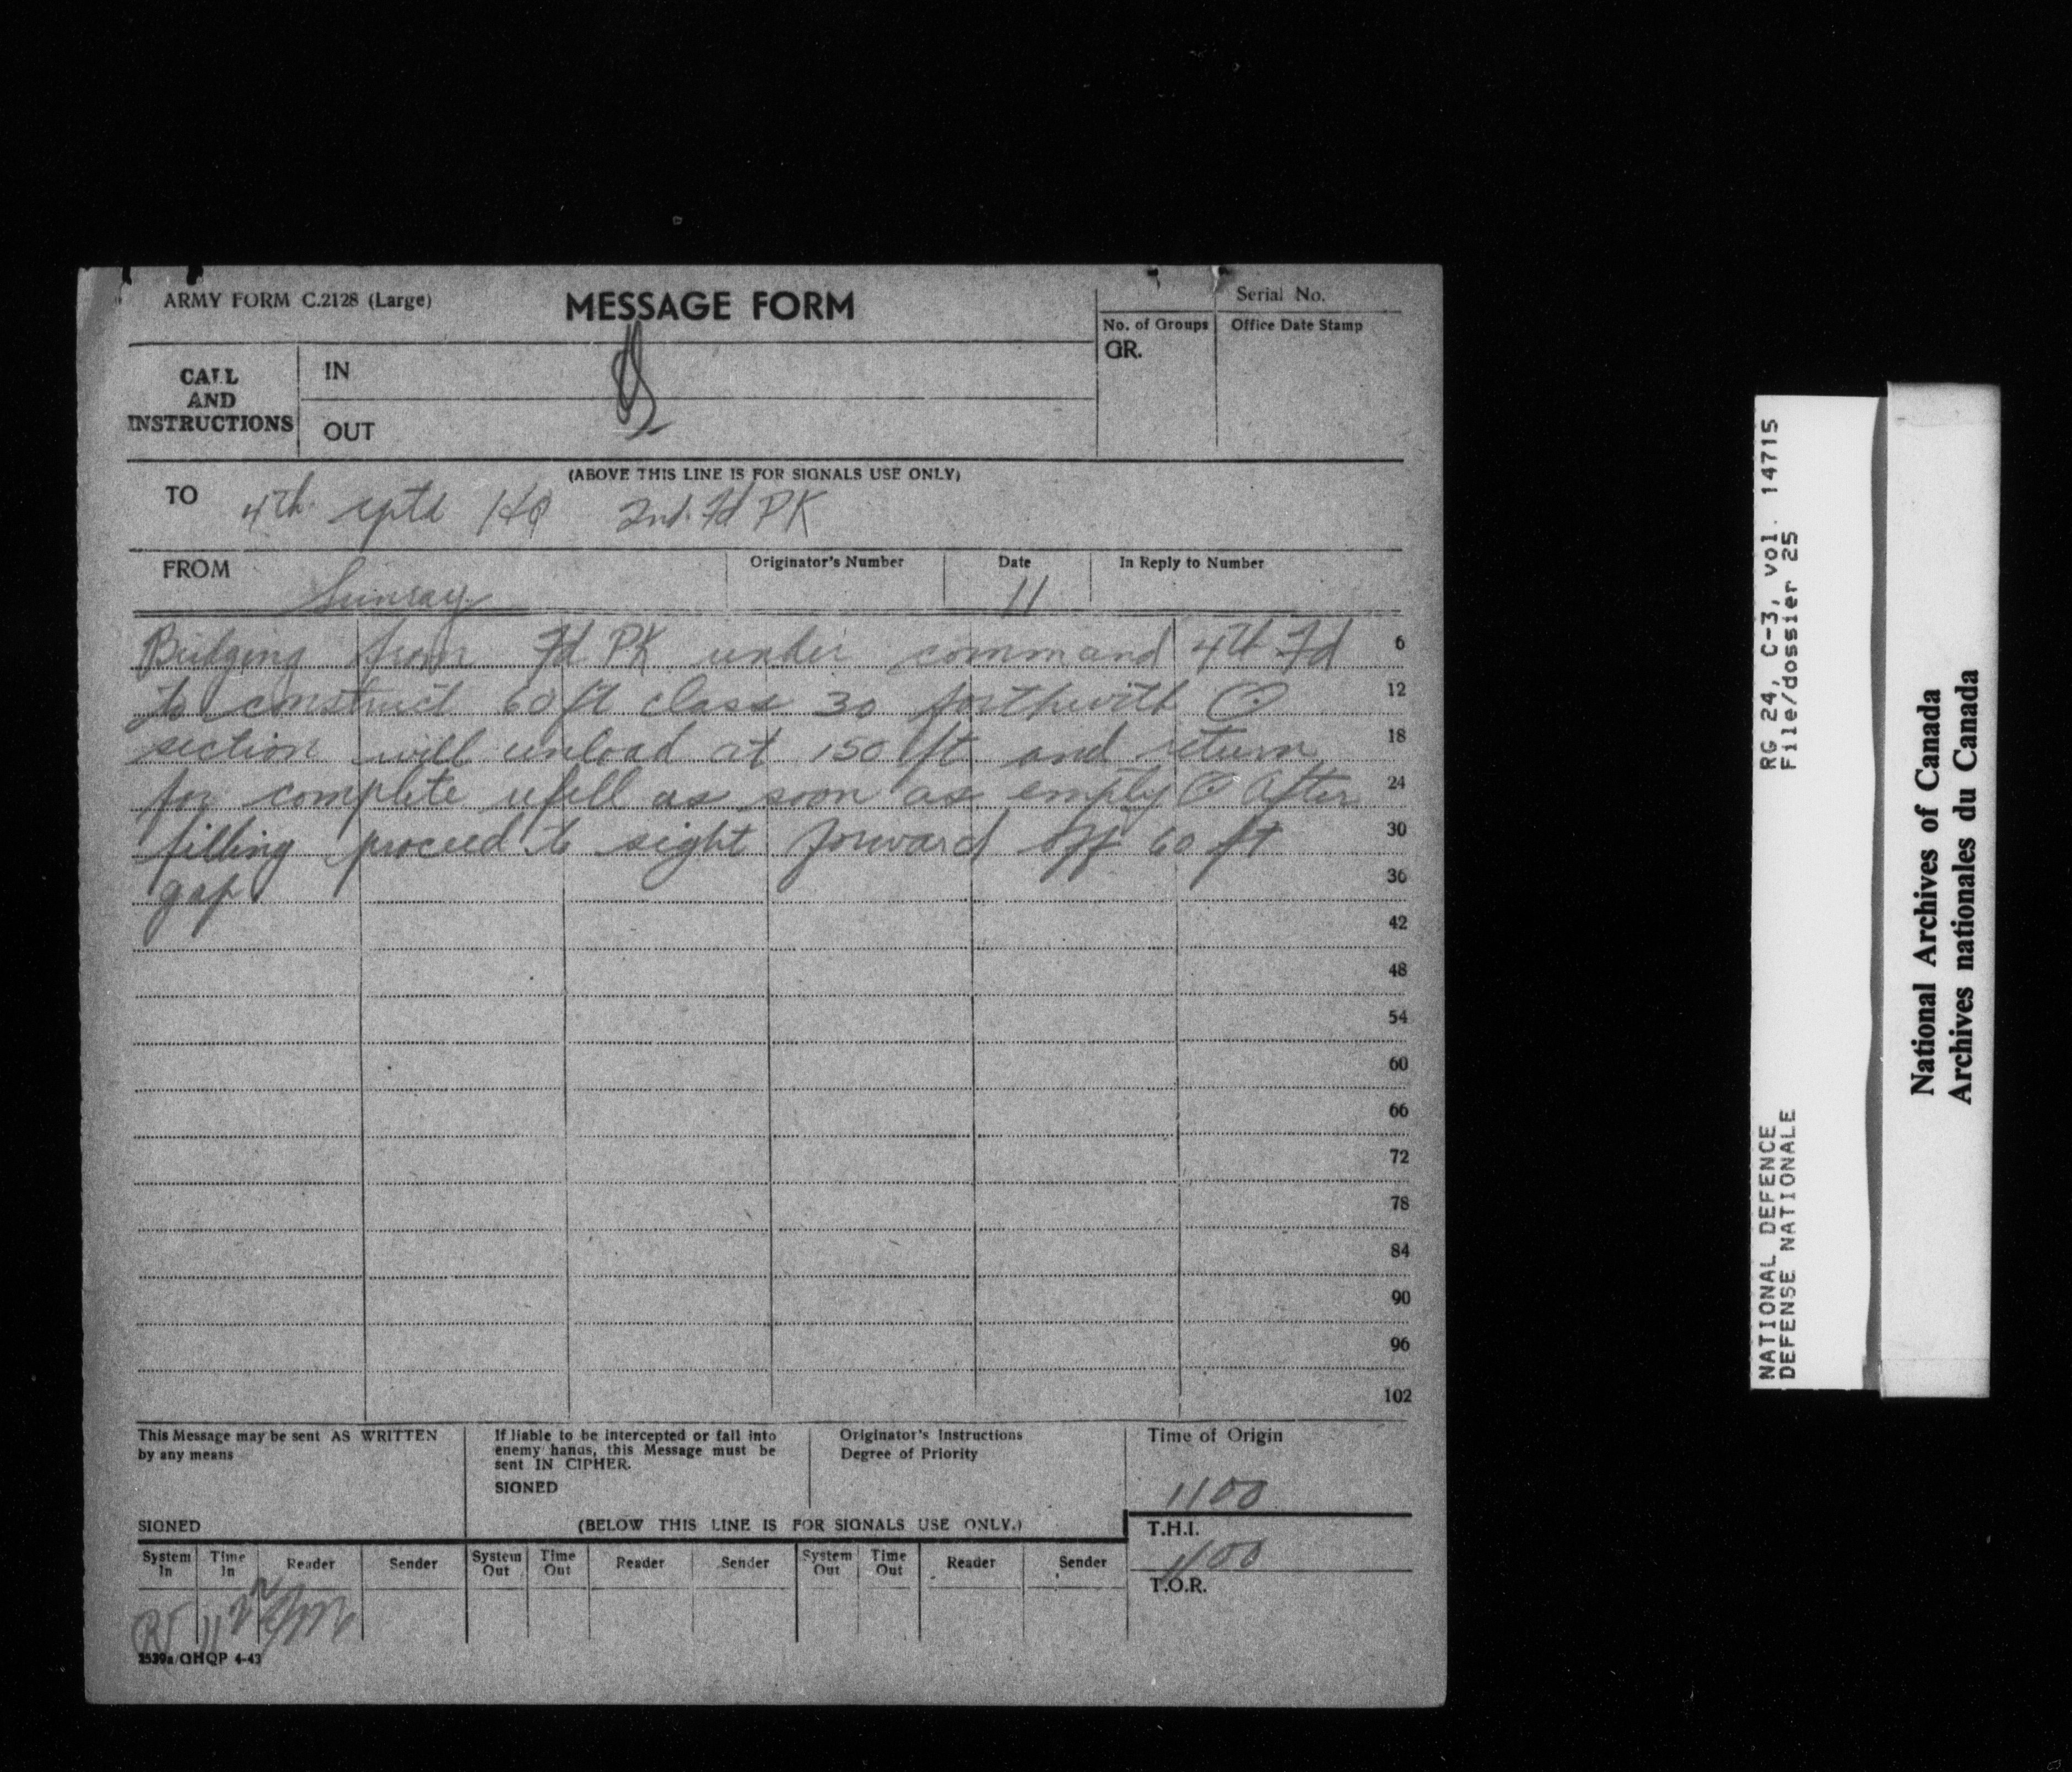 ARMY FORM C.2128 (Large)
MESSAGE FORM
Serial No.
No. of Groups
GR.
Office Date Stamp
CALL
AND
INSTRUCTIONS
IN
OUT
(ABOVE THIS LINE IS FOR SIGNALS USE ONLY)
TO 4th rptd HQ 2nd Fd PK
FROM Sunray
Originator's Number
Date 11
In Reply to Number
Bridging from Fd PK under command 4th Fd 6
to construct 60 ft class 30 forthwith 12
section will unload at 150 ft and return 18
for complete refill as soon as empty After 24
filling proceed to sight forward off 60 ft 30
gap 36
42
48
54
60
66
72
78
84
90
96
102
This Message may be sent AS WRITTEN
by any means
SIGNED
If liable to be intercepted or fall into
enemy hands, this Message must be
sent IN CIPHER.
SIGNED
Originator's Instructions
Degree of Priority
Time of Origin
1100
(BELOW THIS LINE IS FOR SIGNALS USE ONLY.)
T.H.I.
1100
T.O.R.
System In
Time In
Reader
Sender
System Out
Time Out
Reader
Sender
System Out
Time Out
Reader
Sender
RT
2539a/GHQP 4-43
RG 24, C-3, vol. 14715
File/dossier 25
NATIONAL DEFENCE
DEFENSE NATIONALE
National Archives of Canada
Archives nationales du Canada